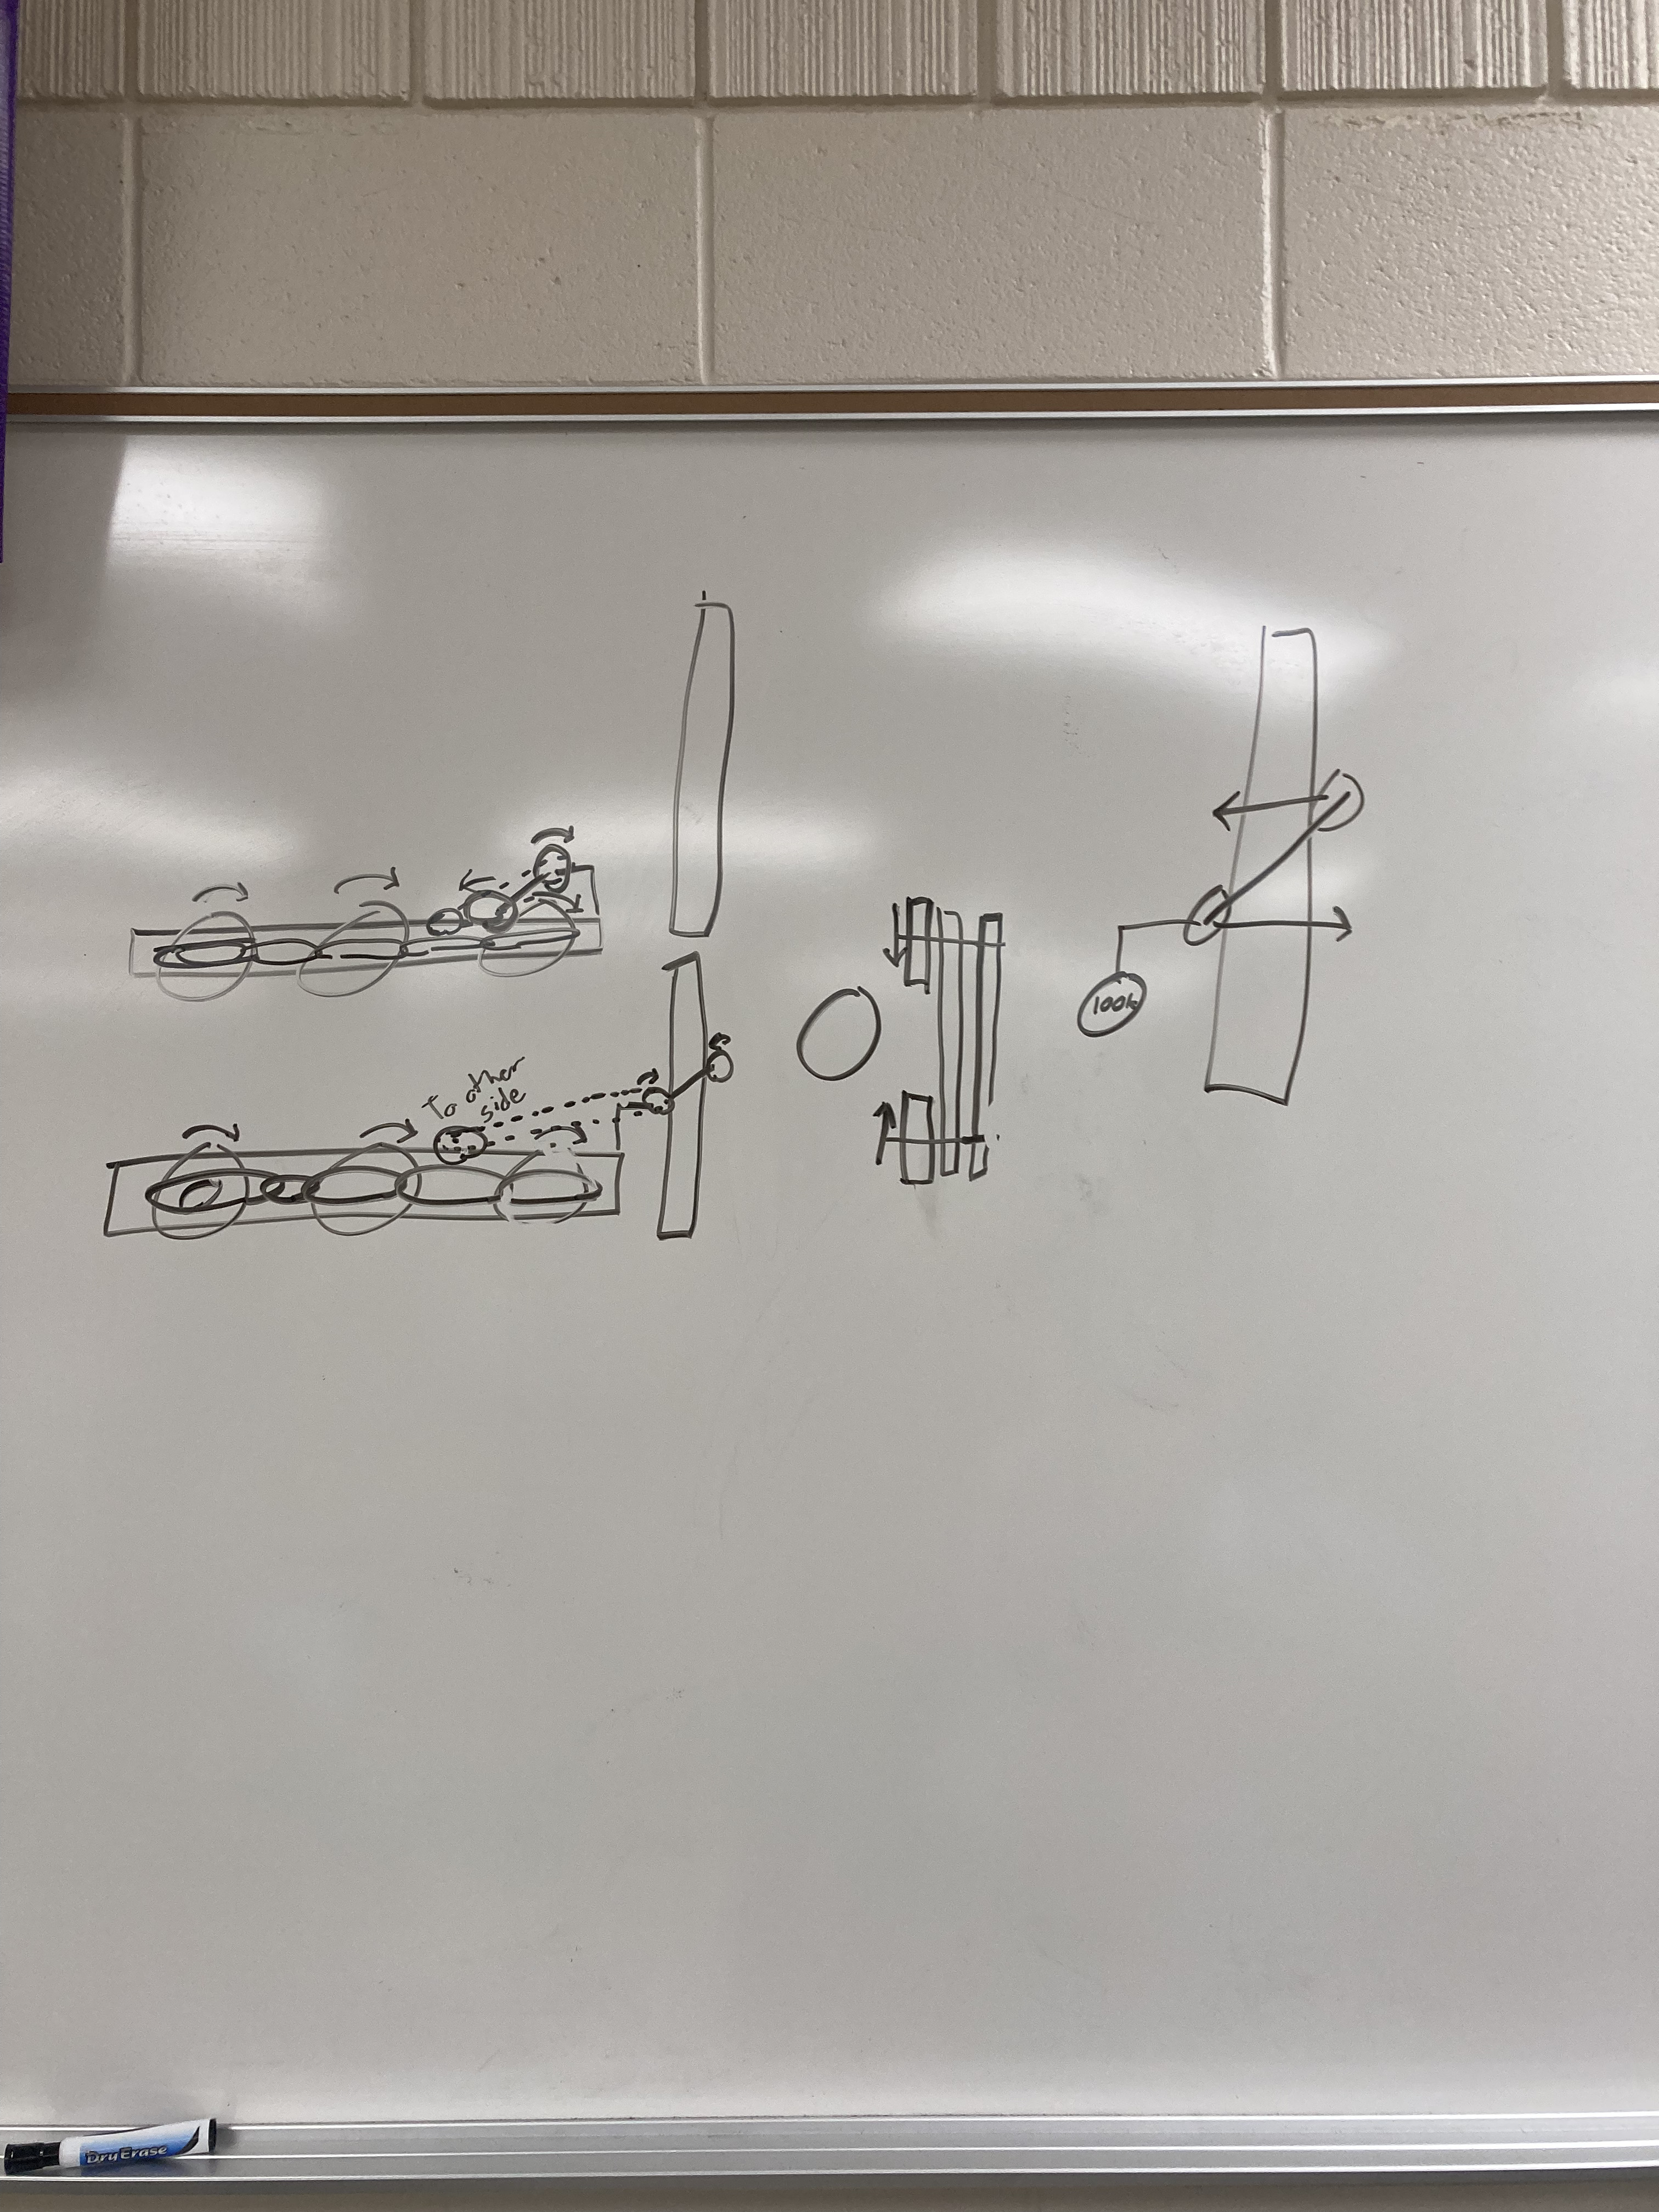 To other
side
100k
DryErase